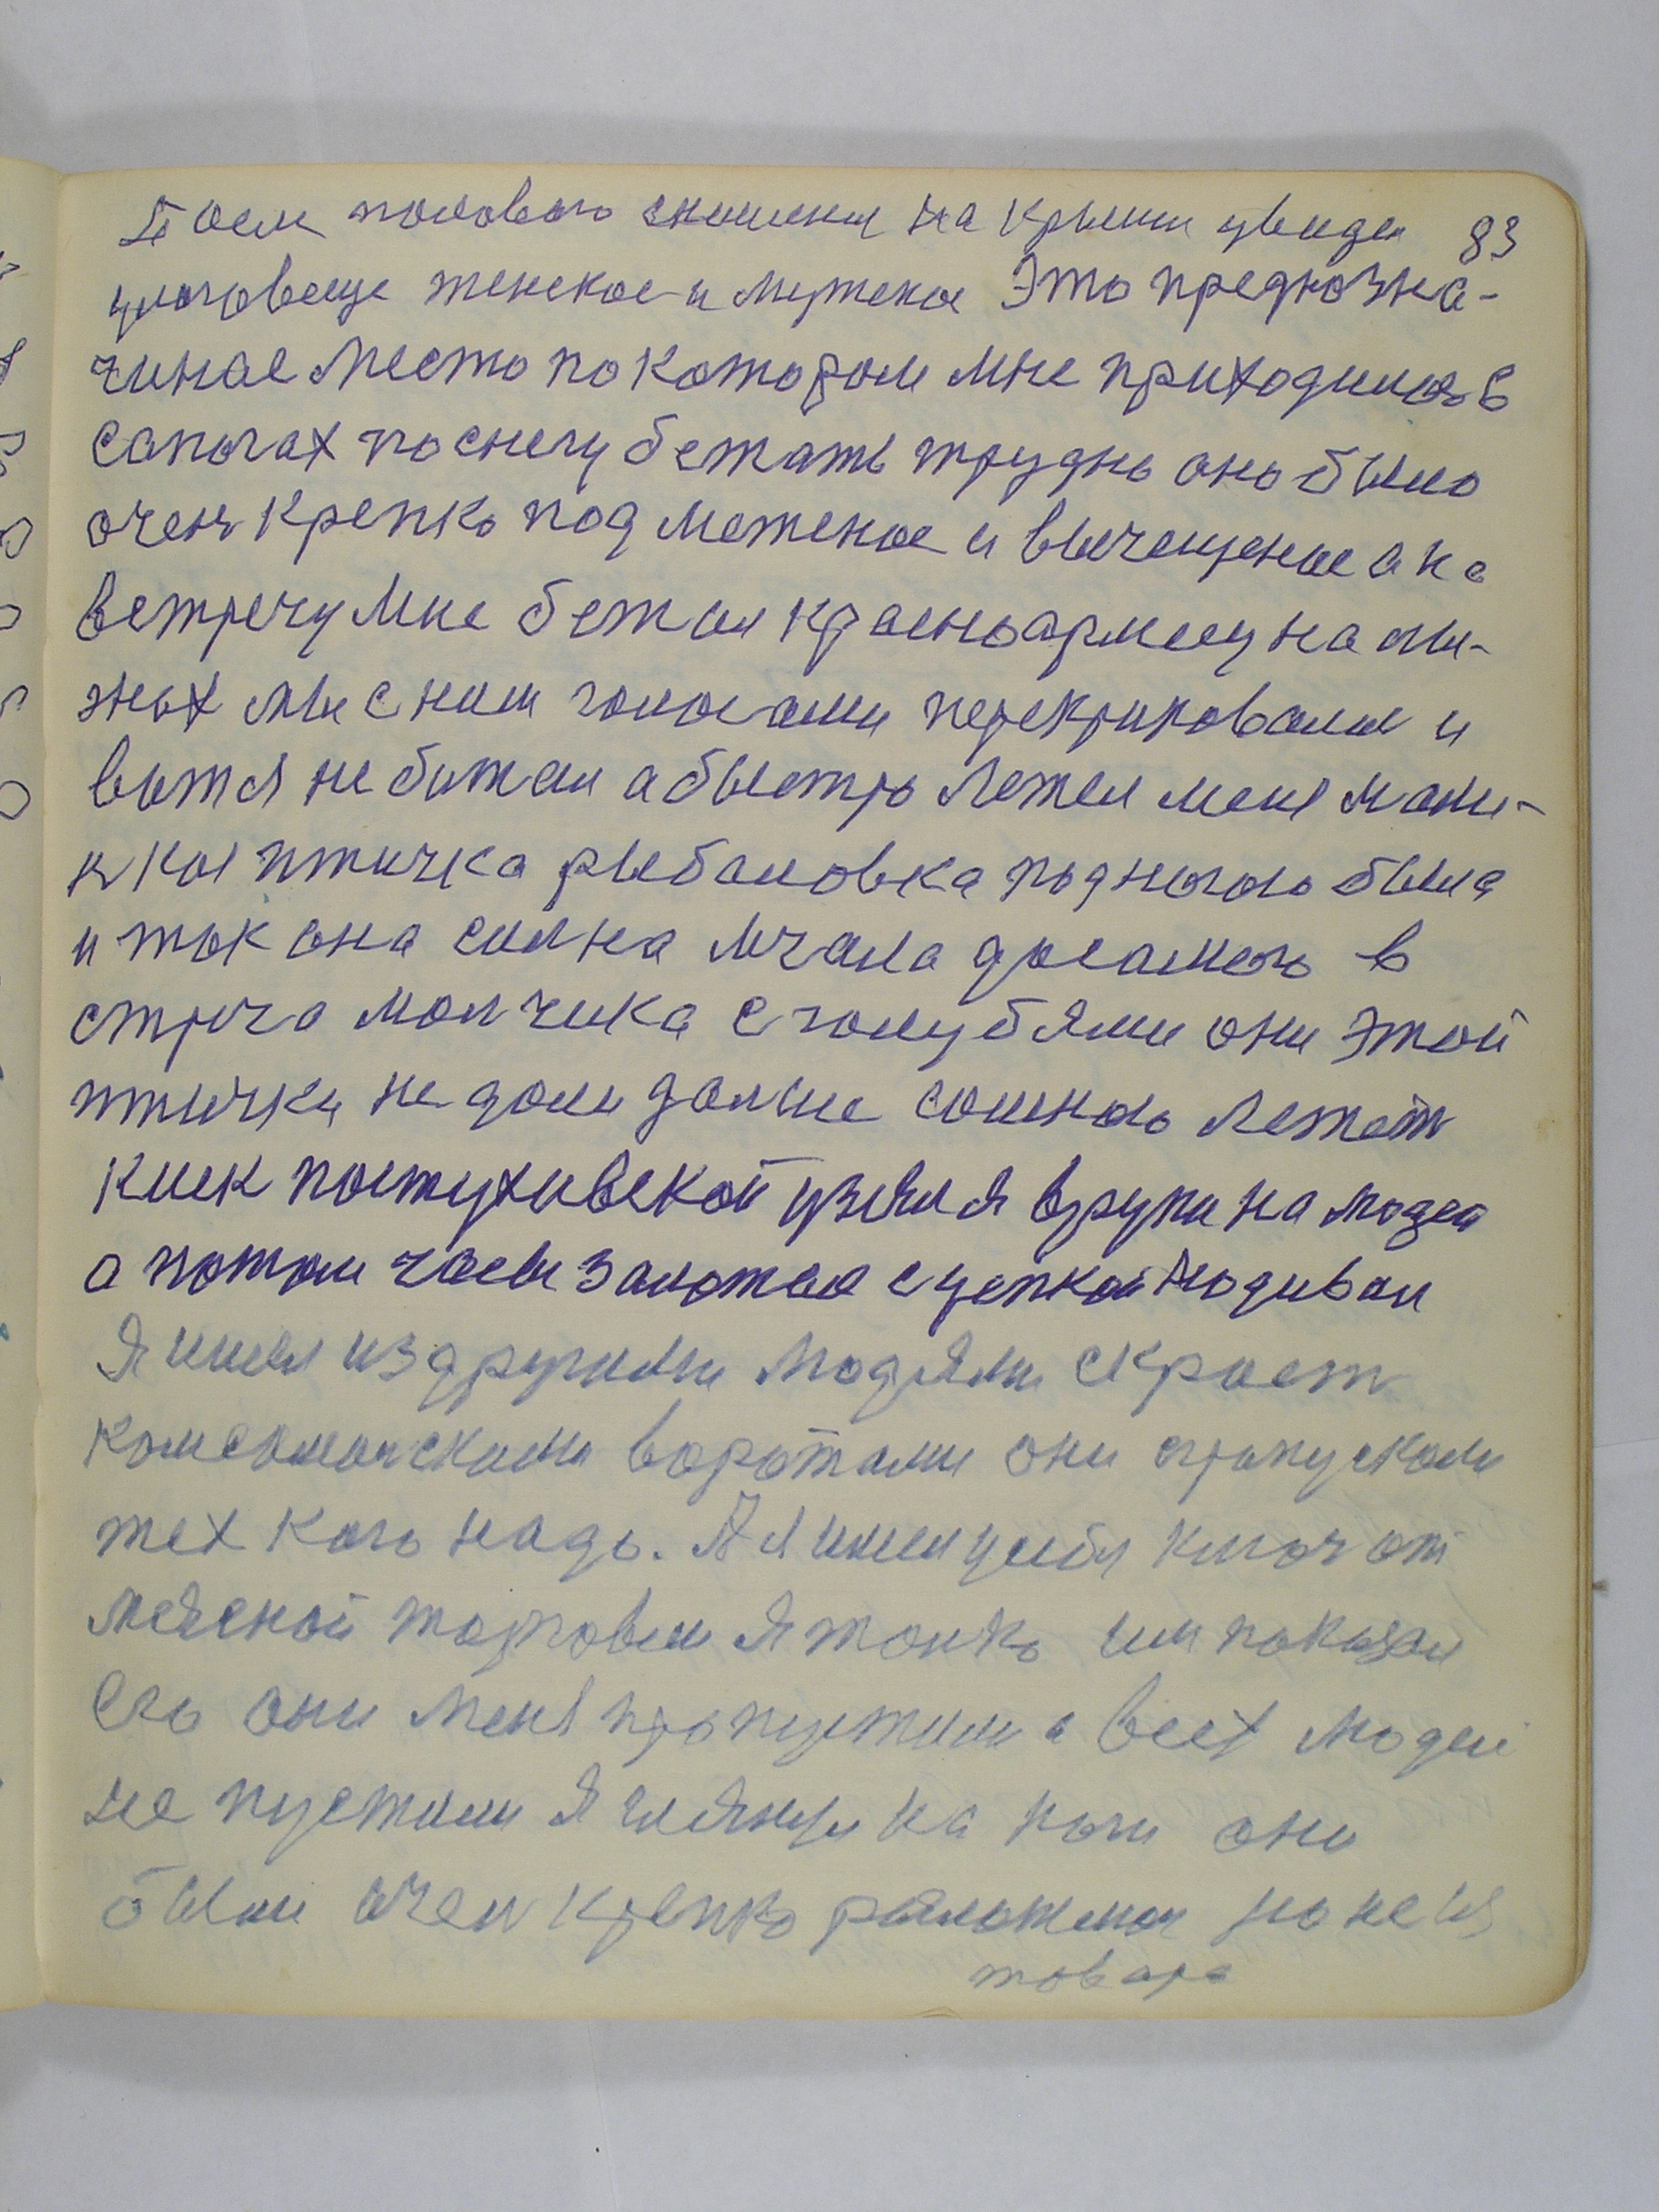 После полового сношения на крыши увидел 83
чудовеще женское и мужское Это предназна-
чиное место по котором мне приходилось в
сапогах по снегу бежать трудно оно было
очень крепко подметеное и вычещеное а на
встречу мне бежал красноармеец на лы-
жах мы с ним голосами перекрикивалис и
вотжя не бижал а быстро летел меня мани-
нкоя птичка рыбаловка под ногою была
и так она силна мчала до самого в
стреча малчика с голубями они этой
птички не дали далше сомною лететь
кнек пастухивской узяля в руки на людеа
а потом часы залотые с цепкой надивал
Я ишел из другими людями скрост
комсомолскими воротами они пропускали
тех кого надо. А я имел усибя ключ от
мясной торговли я толко им показал
его они меня пропустили а всех людей
не пустили я глянул на ноги они
были очен крепко разложени но не ия
товара